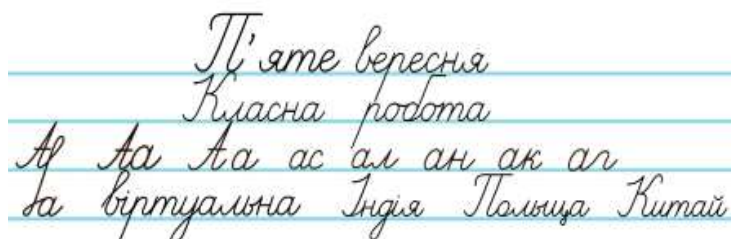 П'яте вересня
Класна робота
А Аа Аа ас ал ан ак аг
За віртуальна Індія Польща Китай